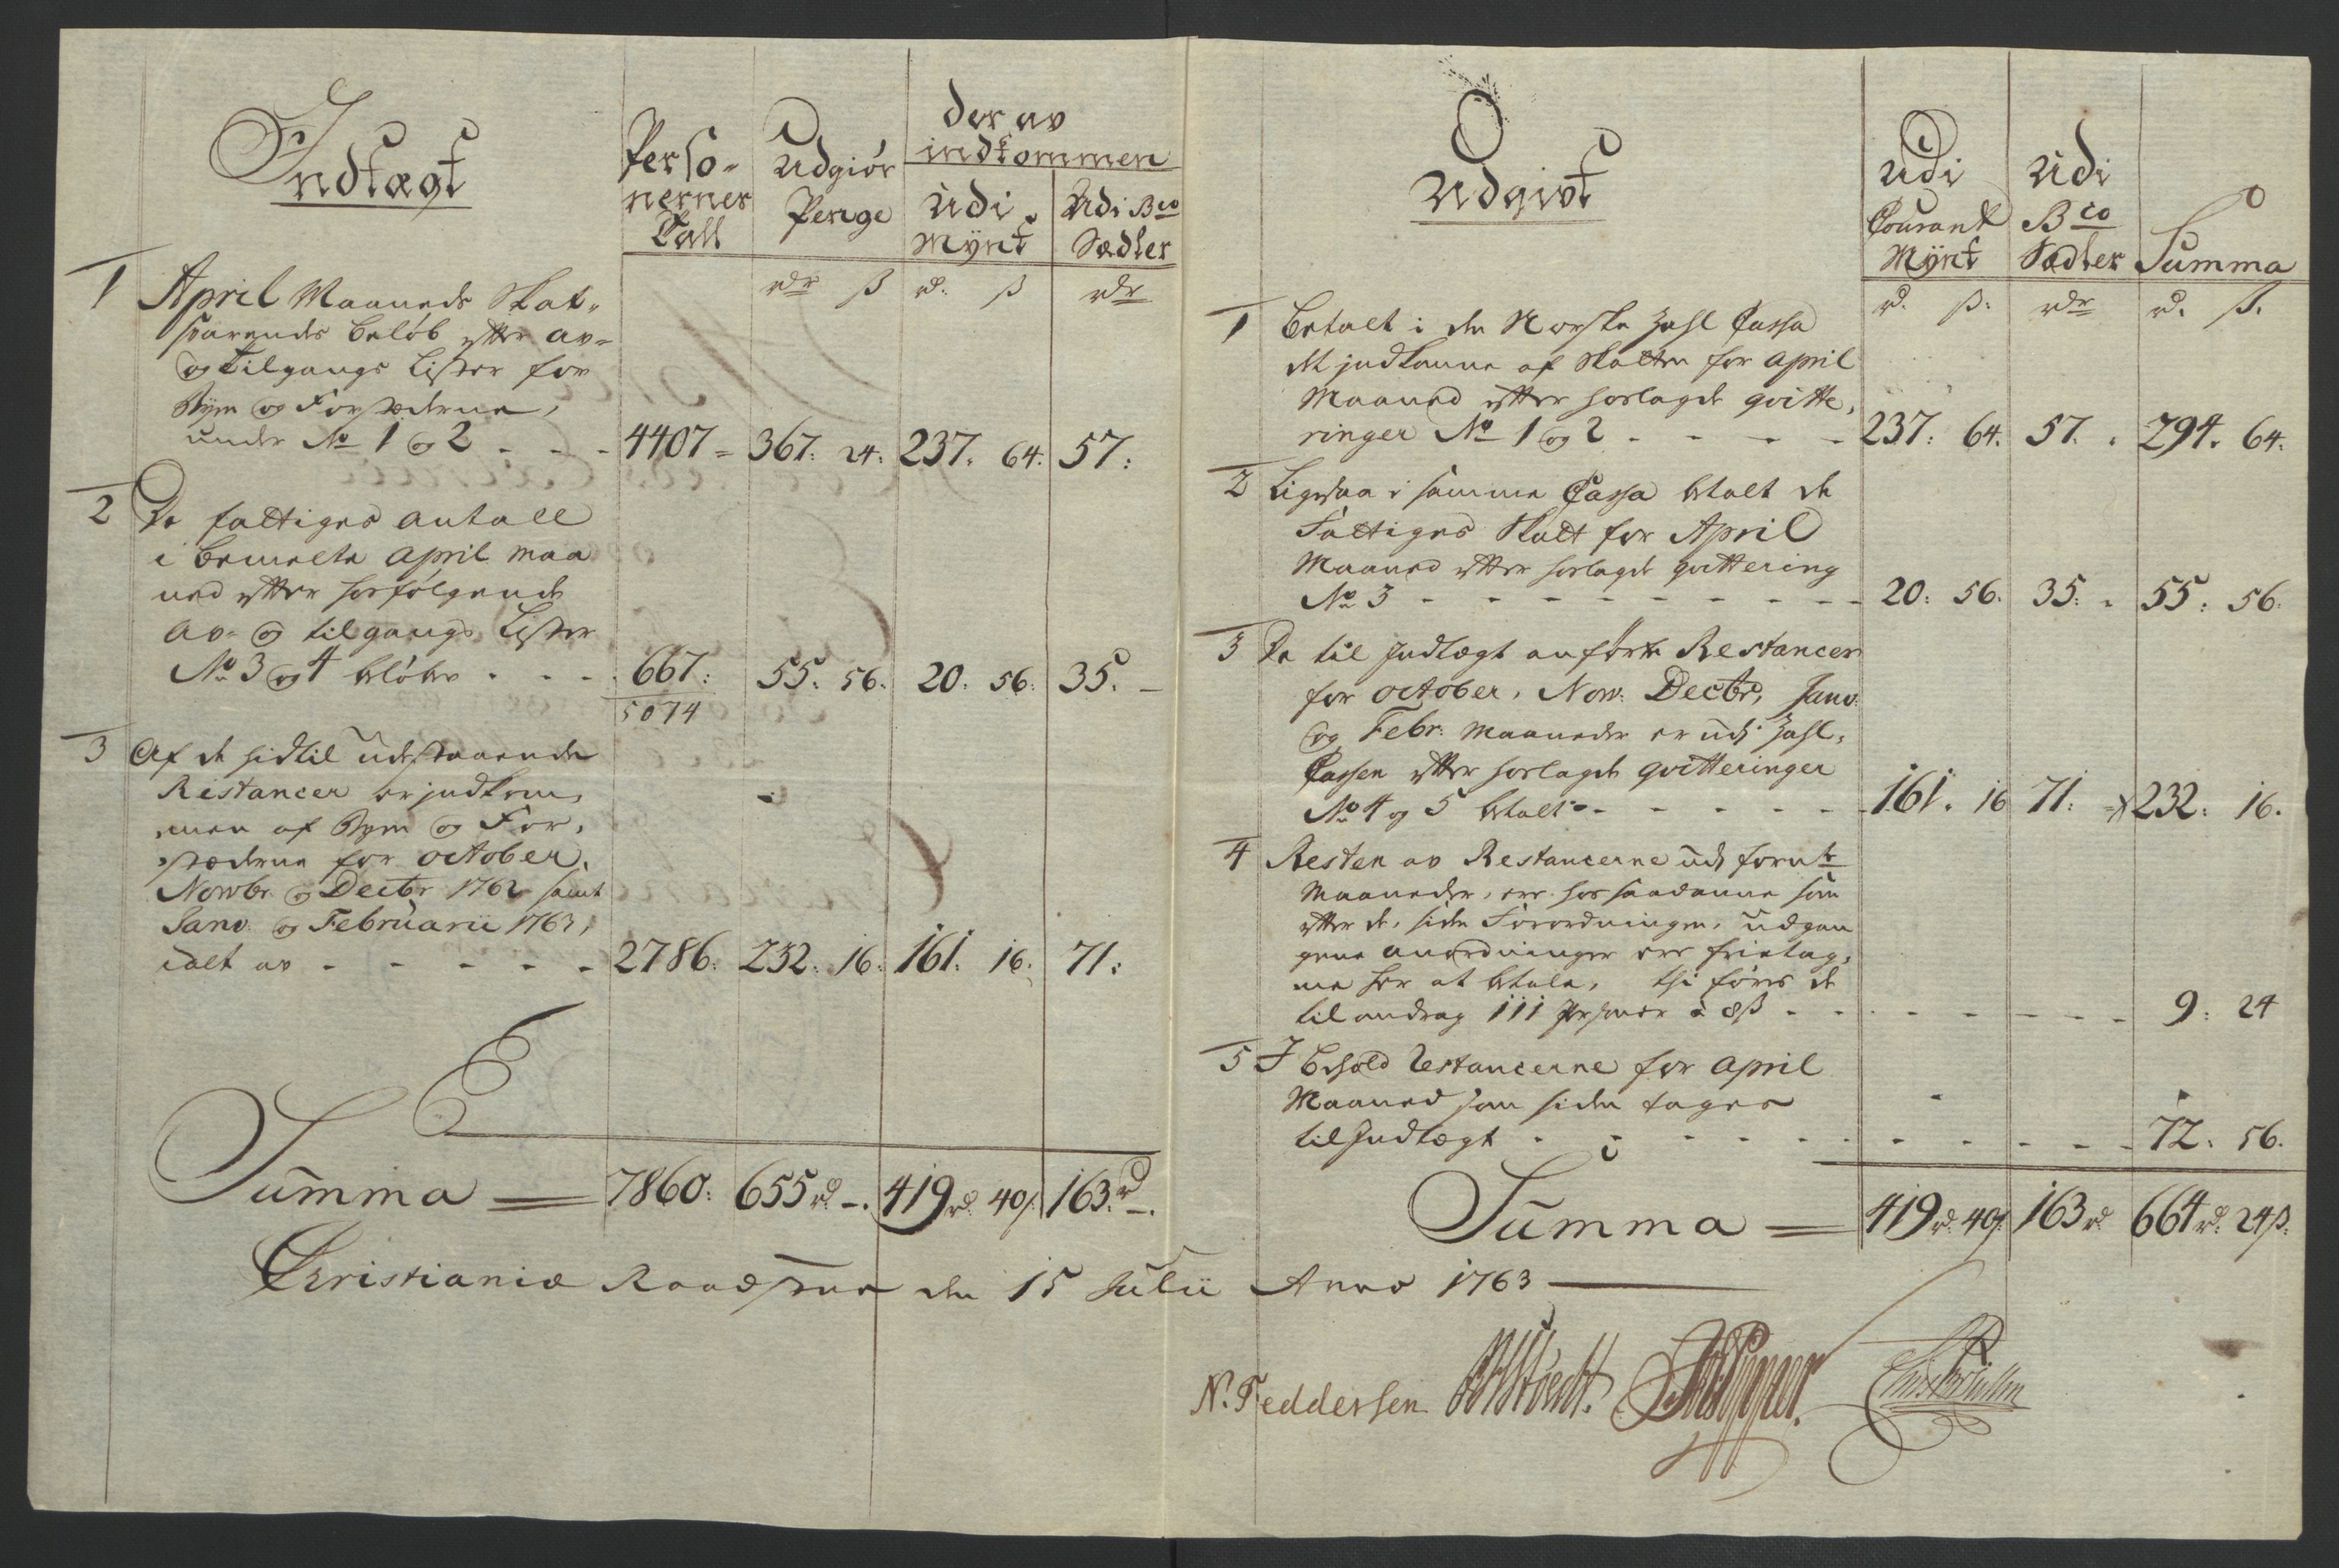 Indtægt
Perso-
nernes
Tall
Udgiør
Penge
der av
indkommen
Udi
Mÿnt
Udi Bco
Sædler
rdr ß rd. ß rdr
1 April Maaneds Skat-
svarendes beløb efter av-
og tilgangs Lister for
Byen og Forstæderne,
under No 1 og 2 - - - 4407 = 367: 24: 237. 64: 57:
2 De fattiges antall
i bemelte April Maa
ned efter hosfølgende
av- og tilgangs Lister
No 3 og 4 beløber - - - 667: 55: 56. 20: 56: 35. -
5074
3 Af de hidtil udestaaende
Restancer er indkom-
men af Byen og For-
stæderne for October,
Novbr. og Decbr 1762 samt
Janv. og Februarii 1763,
i alt av - - - - - 2786: 232: 16: 161: 16: 71:
Summa = 7860: 655 rd -. 419 rd. 40ß 163. rd -.
Udgivt
Udi
Courant
Mÿnt
Udi
Bco
Sædler
Summa
rd. ß: rdr rd. ß.
1 Betalt i den Norske Zahl Cassa
det indkomne af Skatten for April
Maaned efter hoslagde qvitte-
ringer No 1 og 2 - - - - 237: 64. 57. . 294. 64.
2 Ligesaa i samme Cassa betalt de
Fattiges Skatt for April
Maaned efter hoslagde qvittering
No 3 - - - - - - - - - 20: 56. 35: . 55: 56.
3 De til Indtægt anførte Restancer
for October, Nov: Decbr, Janv:
og Febr: Maaneder er udi Zahl-
Cassen efter hoslagde qvitteringer
No 4 og 5 betalt - - - - - 161. 16 71: 232: 16.
4 Resten av Restancerne udi fornte
Maaneder, er hos saadanne som
efter de, siden Forordningen, udgan
gene anordninger ere frietag-
ne for at betale, thi føres de
til andrag 111 Personer à 8ß - - - - - - 9: 24
5 I Behold Restancerne for April
Maaned som siden tages
til Indtægt - - - - - - - - - 72: 56.
Summa = 419 rd. 40ß. 163 rd 664 rd. 24ß.
Christianiæ Raadstue den 15 Julii Anno 1763
N. Feddersen